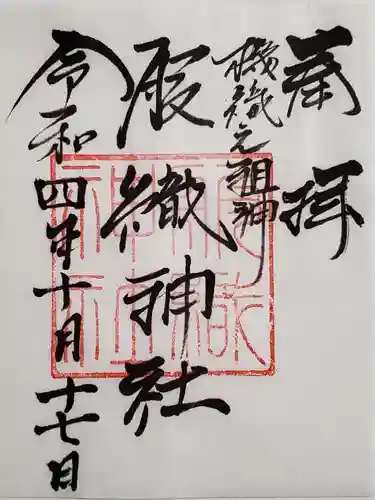 奉拝
機織之祖神
服織神社
令和四年十月十七日
服織神社